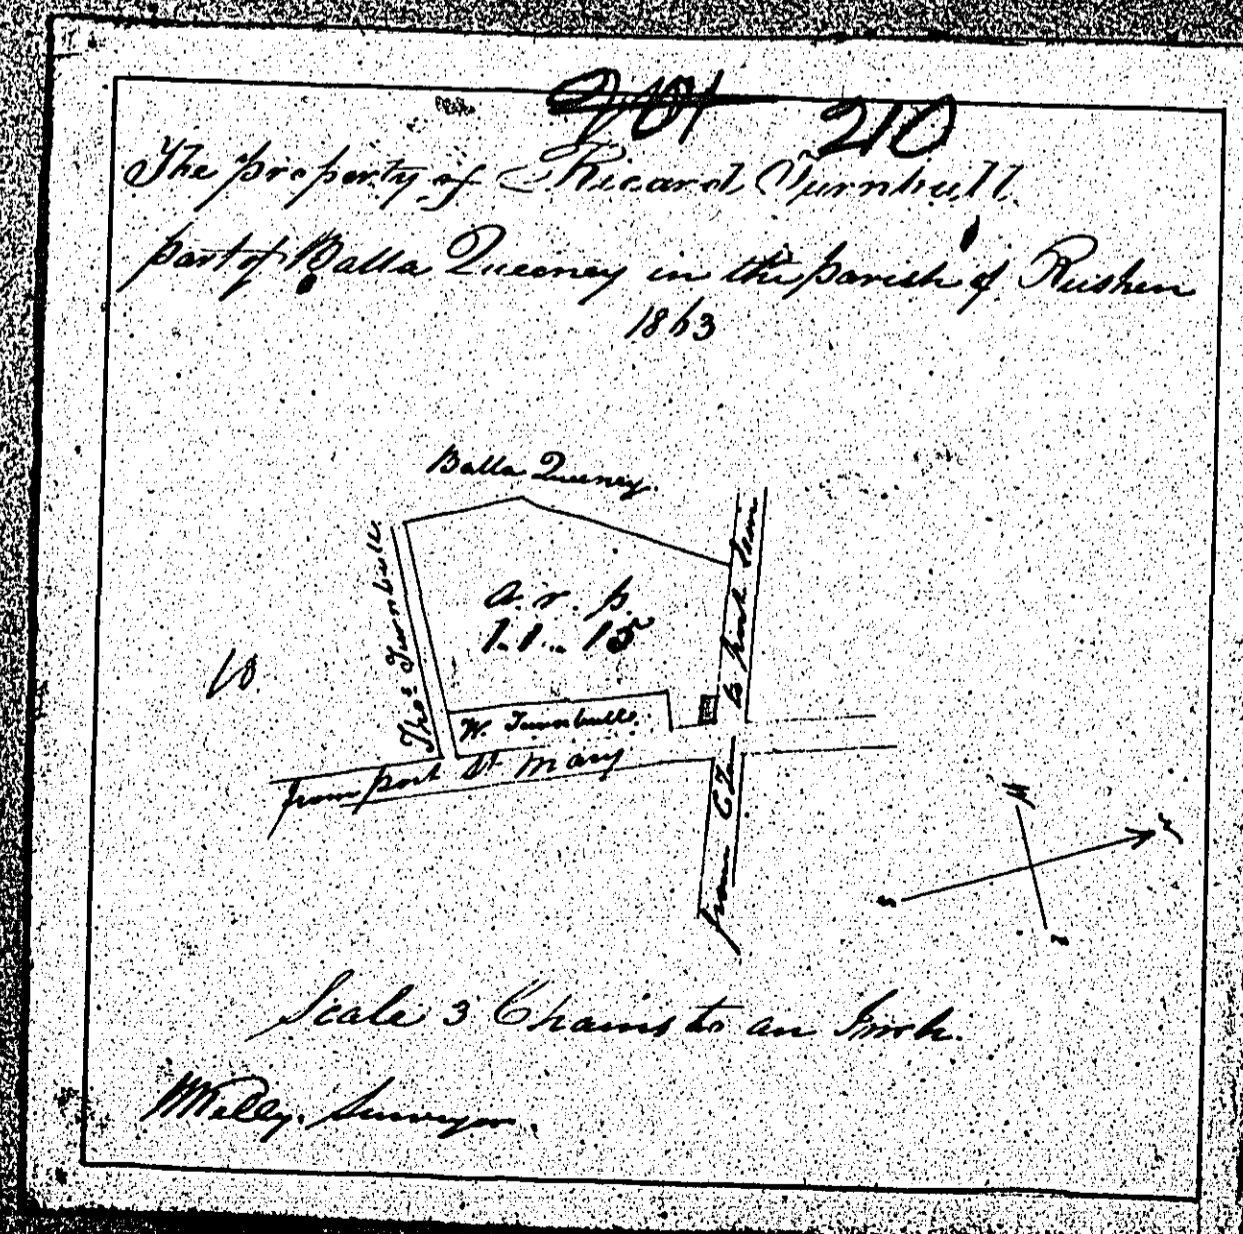 201 210
The property of Ricard Turnbull
part of Balla Queeney in the parish of Rushen
1863
Balla Queeney.
Thos Turnbull
a. r. p.
1. 1.. 15
W. Turnbull
from port St Mary
from to
S
Scale 3 Chains to an Inch.
Kelly. Surveyor.